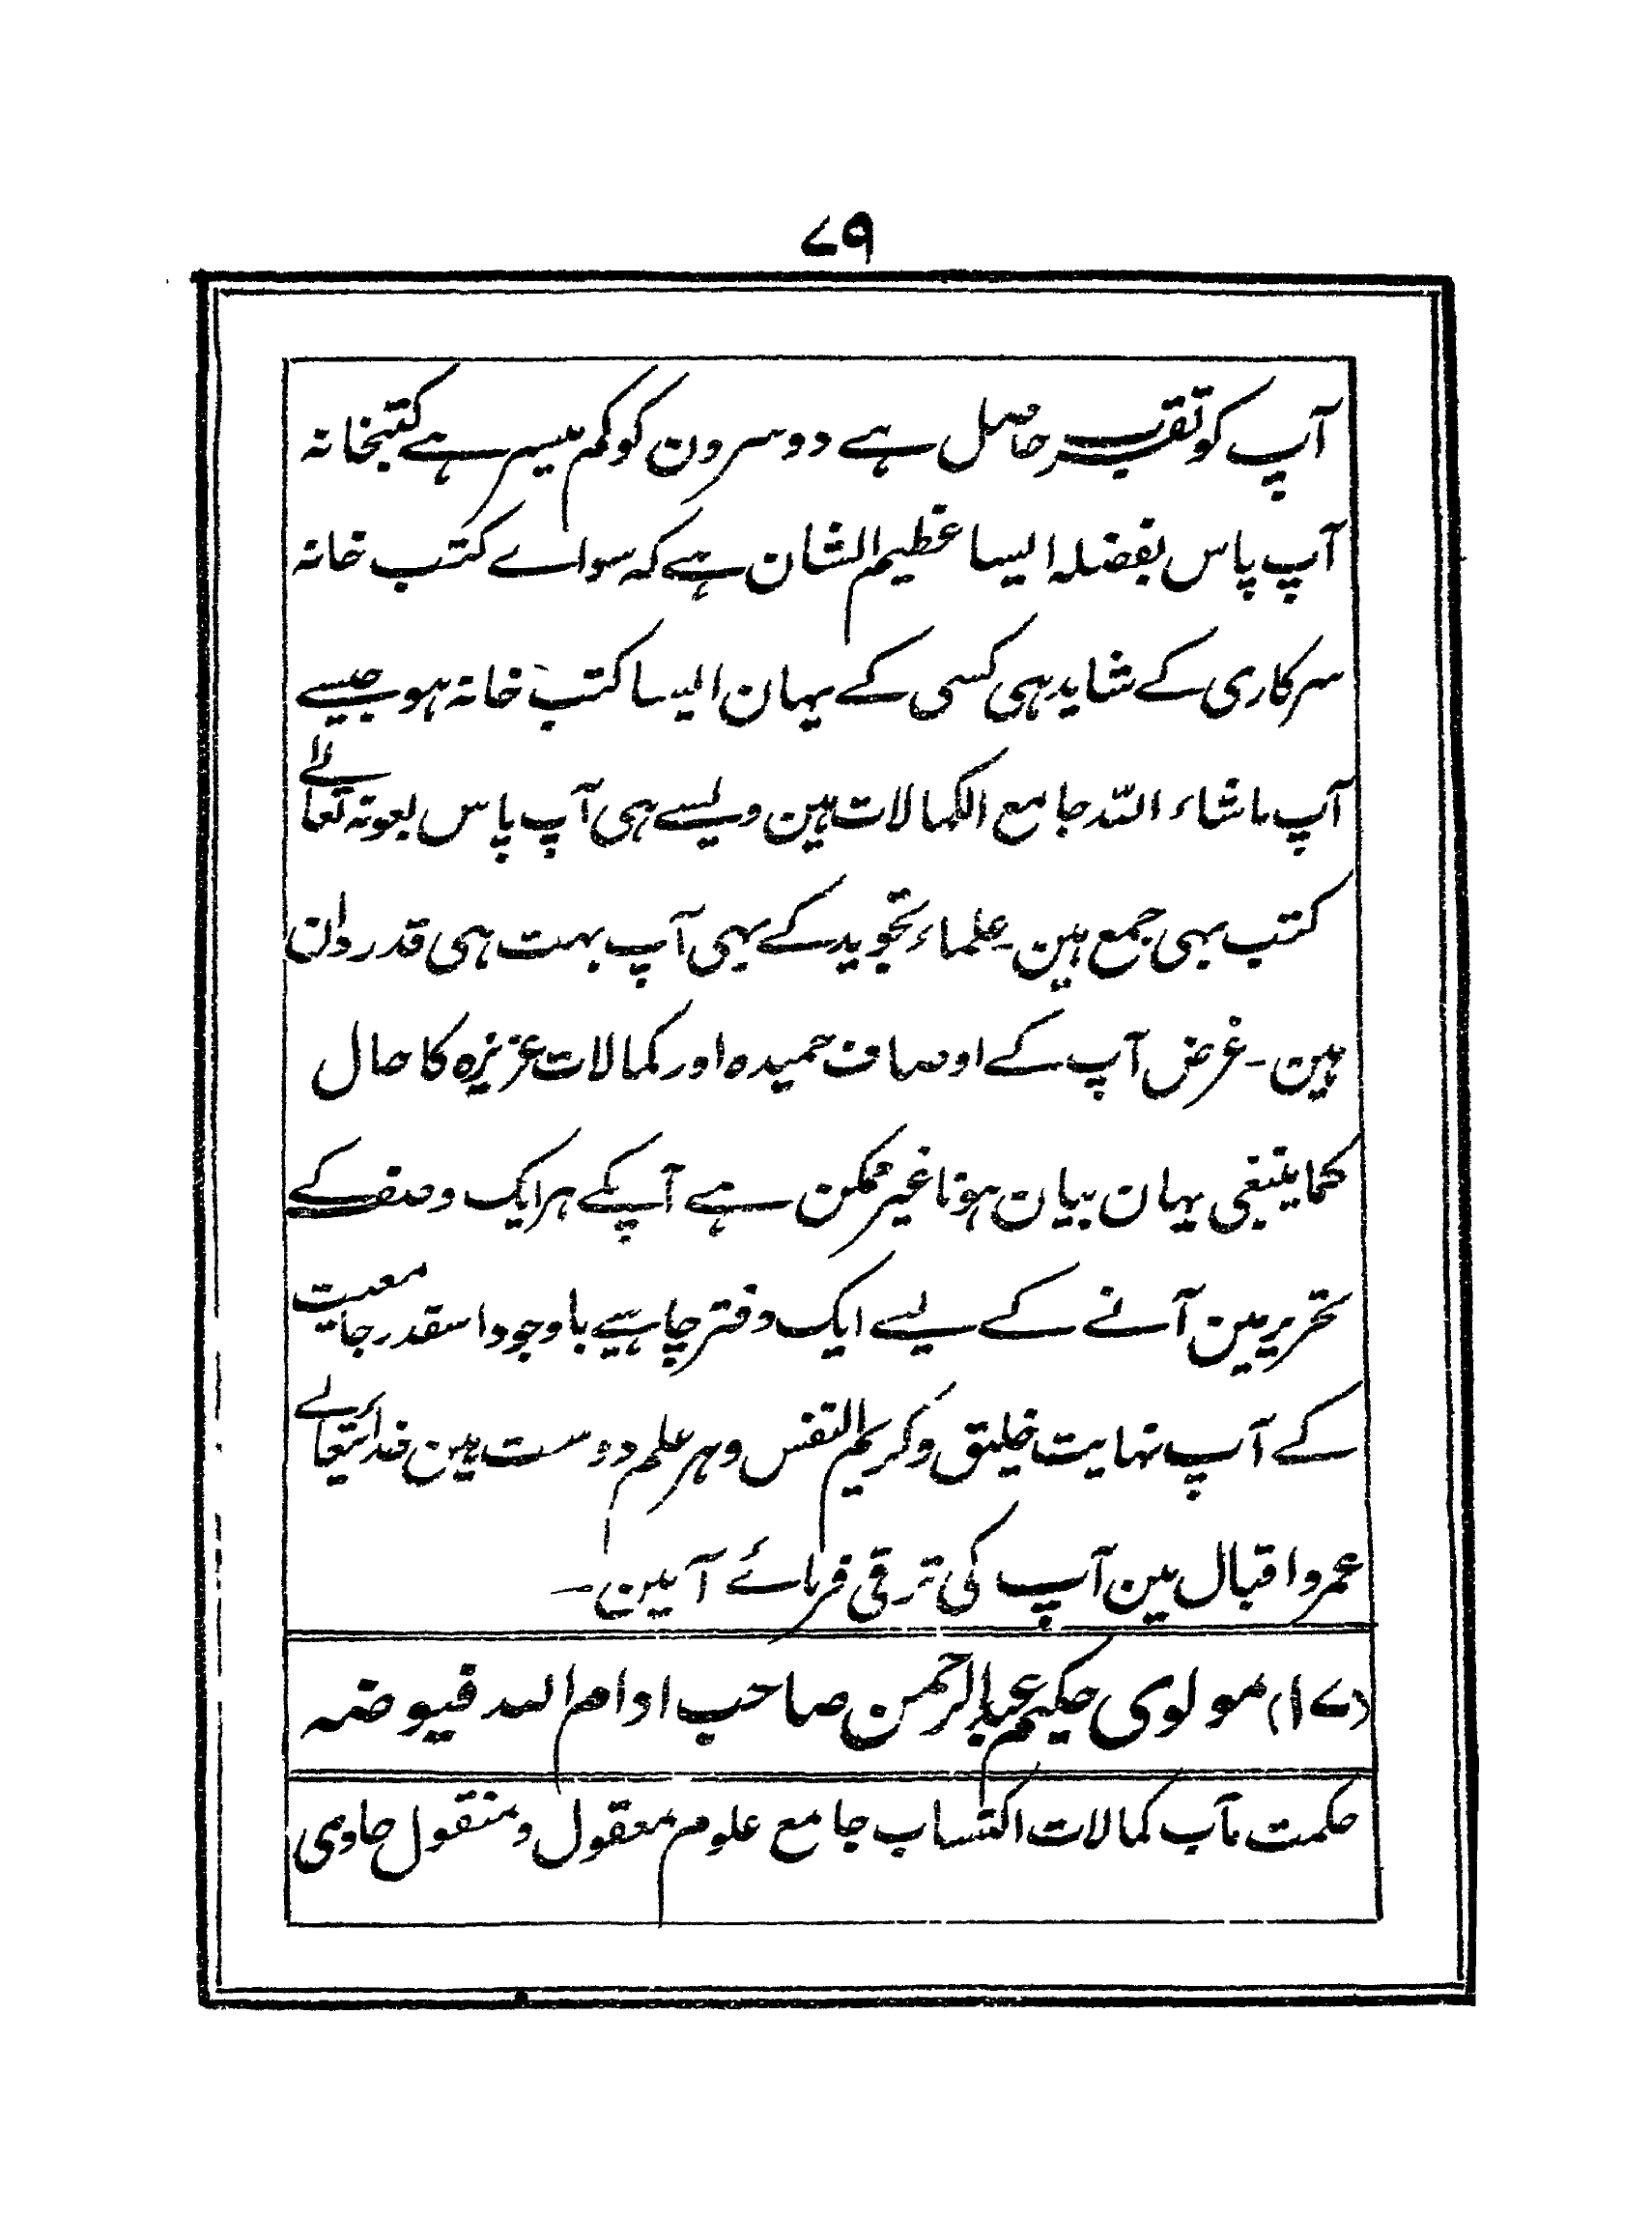 ۷۹
آپ کو تقرب حاصل ہے دوسرون کو کم میسر ہے کتبخانہ
آپ پاس بفضلہ ایسا عظیم الشان ہے کہ سواے کتب خانہ
سرکاری کے شاید ہی کسی کے یہان ایسا کتب خانہ ہو جیسے
آپ ماشاء اللہ جامع الکمالات ہین ویسے ہی آپ پاس بعونہ تعالے
کتب بہی جمع ہین۔ علماء تجوید کے بہی آپ بہت ہی قدر دان
ہین۔ غرض آپ کے اوصاف حمیدہ اور کمالات عزیزہ کا حال
کما ینبغی یہان بیان ہونا غیر ممکن ہے آپکے ہر ایک وصف کے
تحریر مین آنے کے لیے ایک دفتر چاہیے باوجود اسقدر جامعیت
کے آپ نہایت خلیق و کریم النفس و ہر علم دوست ہین خدایتعالے
عمر و اقبال مین آپ کی ترقی فرمائے آمین۔
(۱۷) مولوی حکیم عبدالرحمن صاحب ادام اللہ فیوضہ
حکمت مآب کمالات اکتساب جامع علوم معقول و منقول حاوی